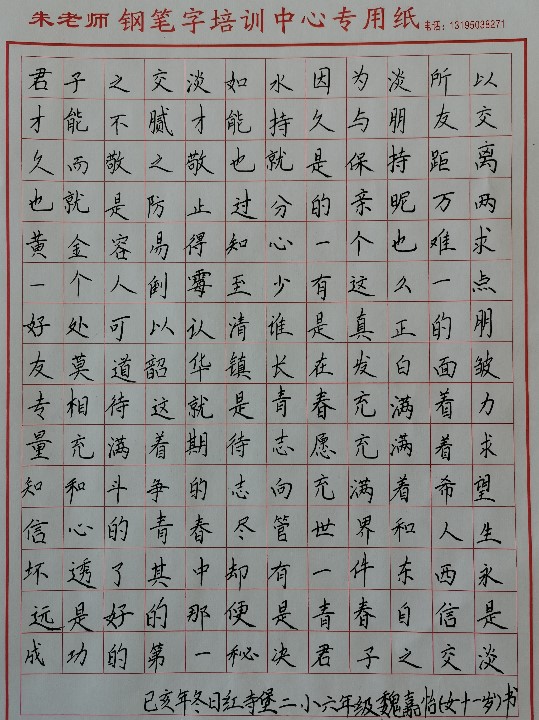 朱老师 钢笔字培训中心专用纸 电话:13195038271
君子之交淡如水因为淡所以
才能不腻才能持久与朋友交
久而敬之敬也就是保持距离
也就是防止过分的亲昵万两
黄金容易得知心一个也难求
一个人倒霉至少有这么一点
好处可以认清谁是真正的朋
友莫道韶华镇长在发白面皱
专相待这就是青春充满着力
量充满着期待志愿充满着求
知和斗争的志向充满着希望
信心的青春尽管世界和人生
坏透了其中却有一件东西永
远是好的那便是青春自信是
成功的第一秘决君子之交淡
己亥年冬日红寺堡二小六年级魏嘉怡(女十一岁)书